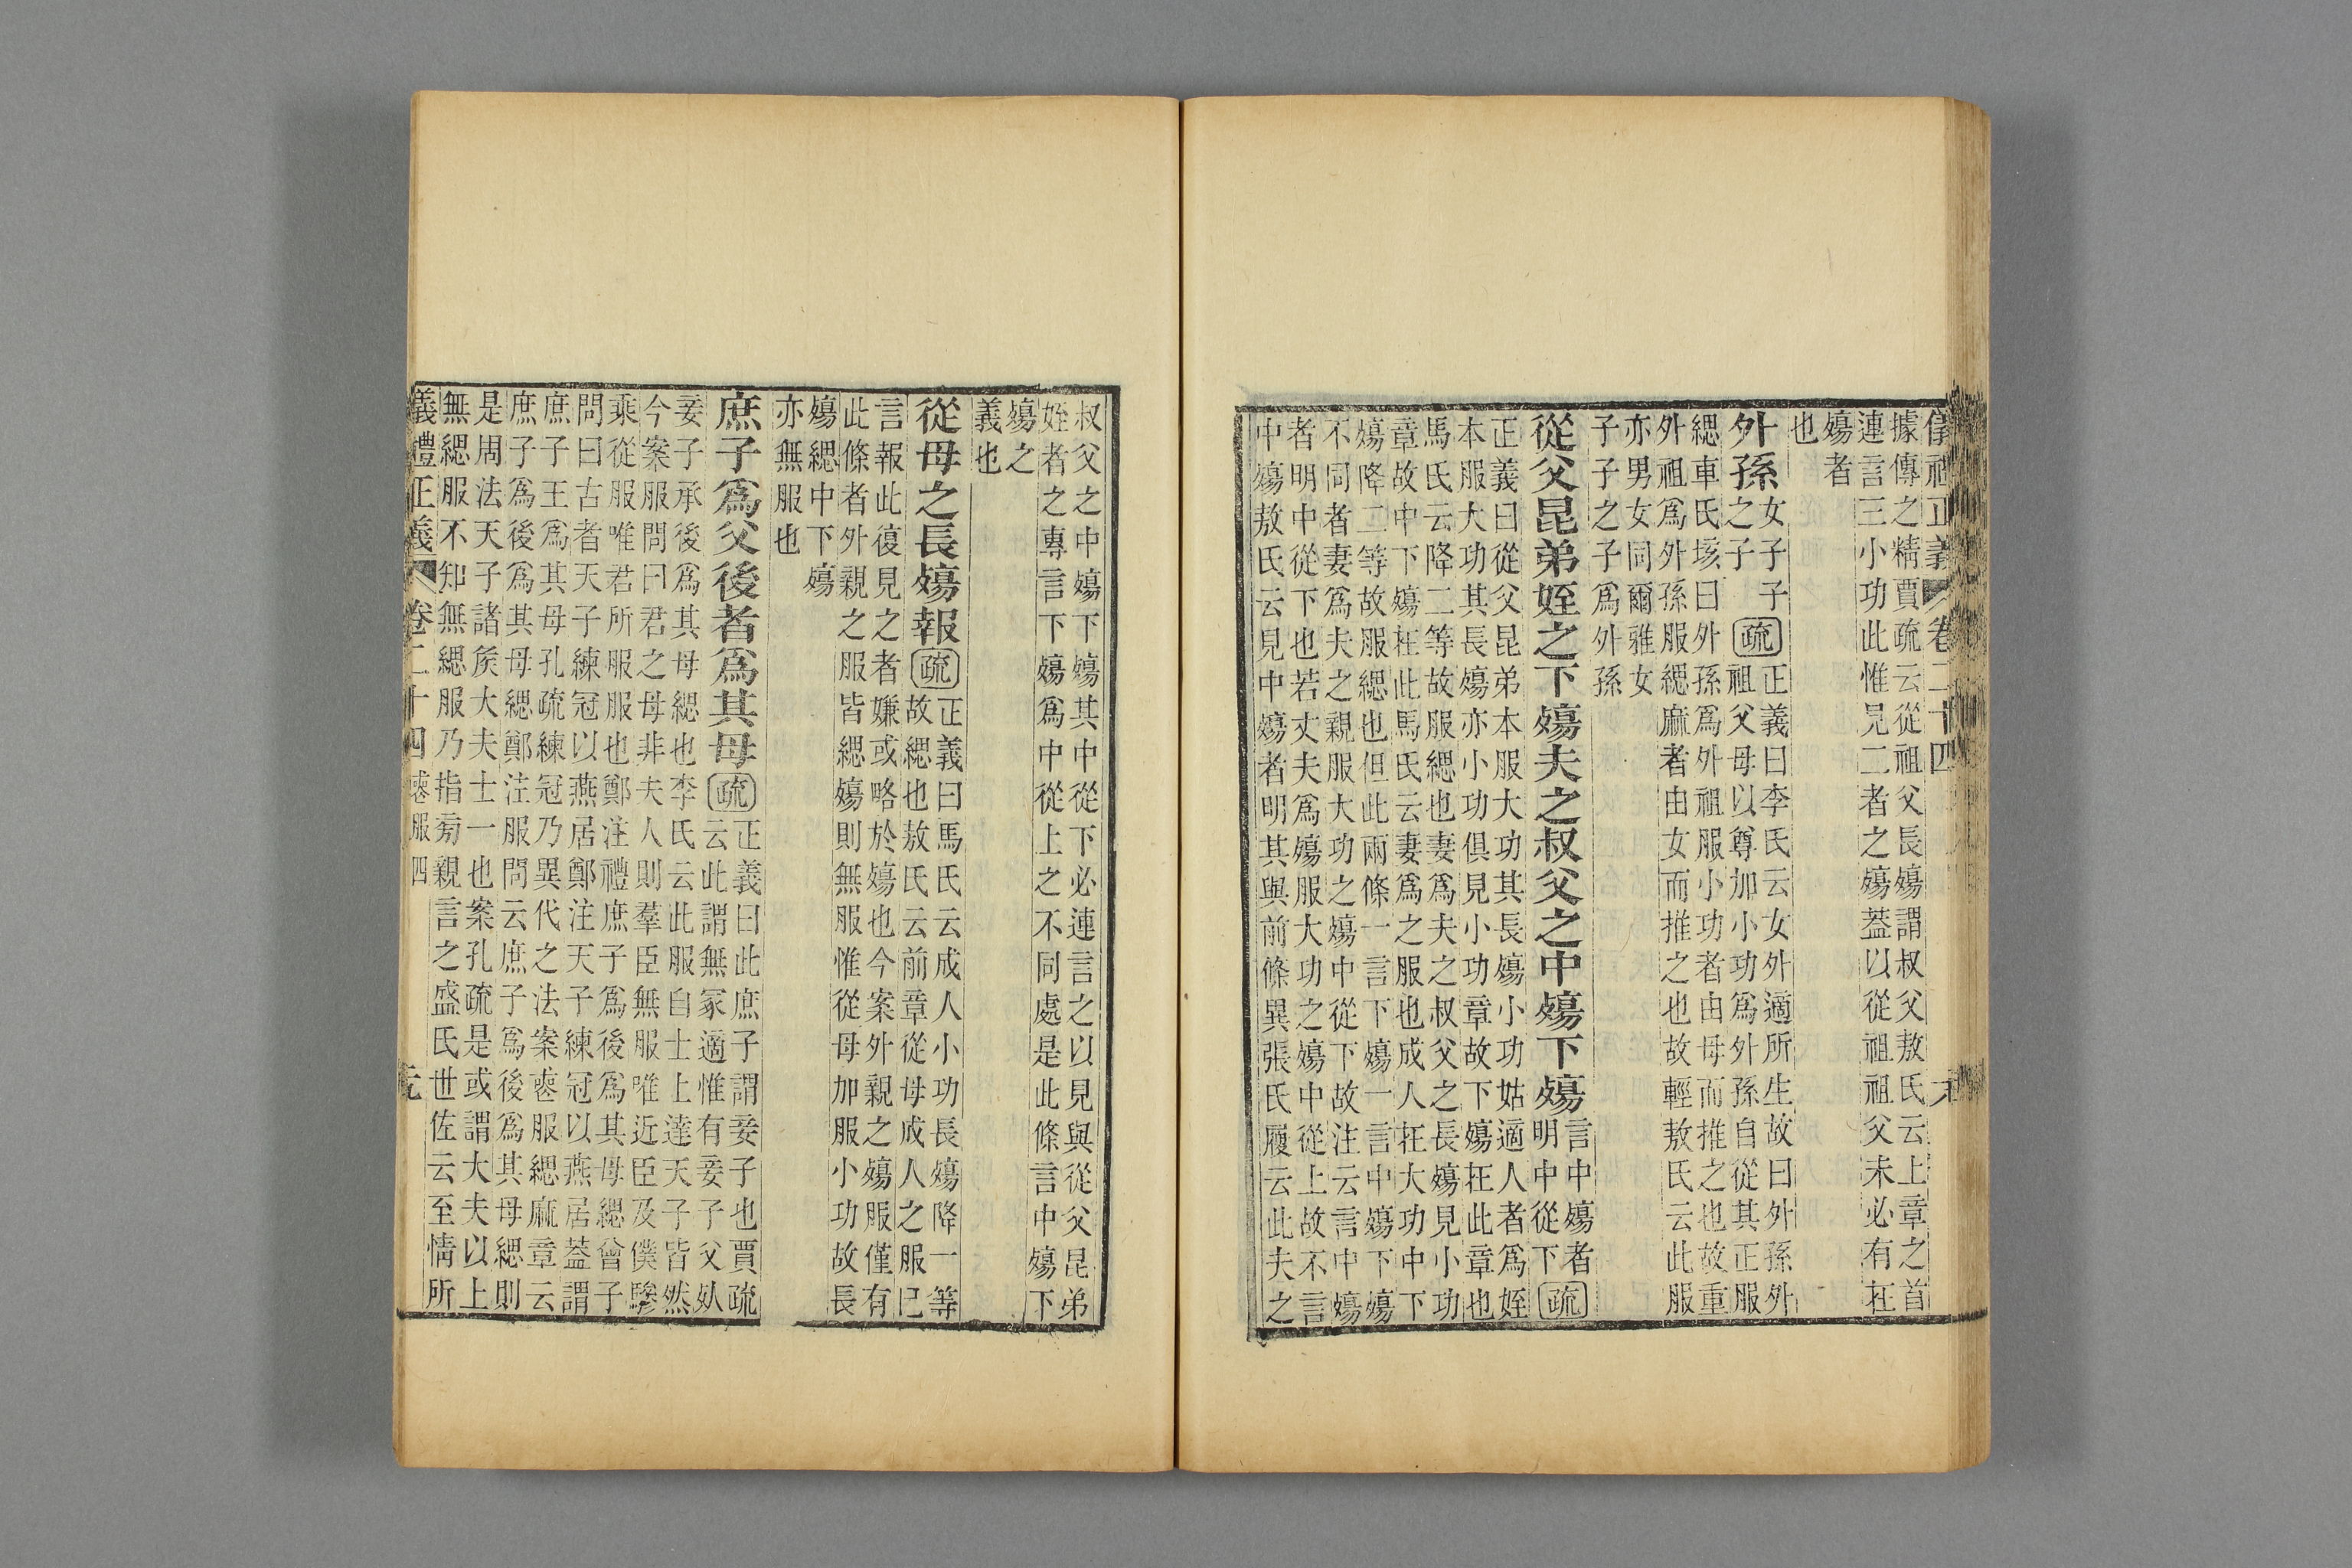 儀禮正義 卷二十四
據傳之精賈疏云從祖父長殤謂叔父敖氏云上章之首
連言三小功此惟見二者之殤葢以從祖祖父未必有在
殤者
也
外孫女子子
之子
疏正義曰李氏云女外適所生故曰外孫外
祖父母以尊加小功爲外孫自從其正服
緦車氏垓曰外孫爲外祖服小功者由母而推之也故重
外祖爲外孫服緦麻者由女而推之也故輕敖氏云此服
亦男女同爾雅女
子子之子爲外孫
從父昆弟姪之下殤夫之叔父之中殤下殤言中殤者
明中從下
疏
正義曰從父昆弟本服大功其長殤小功姑適人者爲姪
本服大功其長殤亦小功俱見小功章故下殤在此章也
馬氏云降二等故服緦也妻爲夫之叔父之長殤見小功
章故中下殤在此馬氏云妻爲之服也成人在大功中下
殤降二等故服緦也但此兩條一言下殤一言中殤下殤
不同者妻爲夫之親服大功之殤中從下故注云言中殤
者明中從下也若丈夫爲殤服大功之殤中從上故不言
中殤敖氏云見中殤者明其與前條異張氏履云此夫之
叔父之中殤下殤其中從下必連言之以見與從父昆弟
姪者之專言下殤爲中從上之不同處是此條言中殤下
殤之
義也
從母之長殤報疏正義曰馬氏云成人小功長殤降一等
故緦也敖氏云前章從母成人之服已
言報此復見之者嫌或略於殤也今案外親之殤服僅有
此條者外親之服皆緦殤則無服惟從母加服小功故長
殤緦中下殤
亦無服也
庶子爲父後者爲其母疏正義曰此庶子謂妾子也賈疏
云此謂無冢適惟有妾子父㱙
妾子承後爲其母緦也李氏云此服自士上達天子皆然
今案服問曰君之母非夫人則羣臣無服唯近臣及僕驂
乘從服唯君所服服也鄭注禮庶子爲後爲其母緦曾子
問曰古者天子練冠以燕居鄭注天子練冠以燕居葢謂
庶子王爲其母孔疏練冠乃異代之法案喪服緦麻章云
庶子爲後爲其母緦鄭注服問云庶子爲後爲其母緦則
是周法天子諸侯大夫士一也案孔疏是或謂大夫以上
無緦服不知無緦服乃指㫄親言之盛氏世佐云至情所
義禮正義 卷二十四 喪服四 元